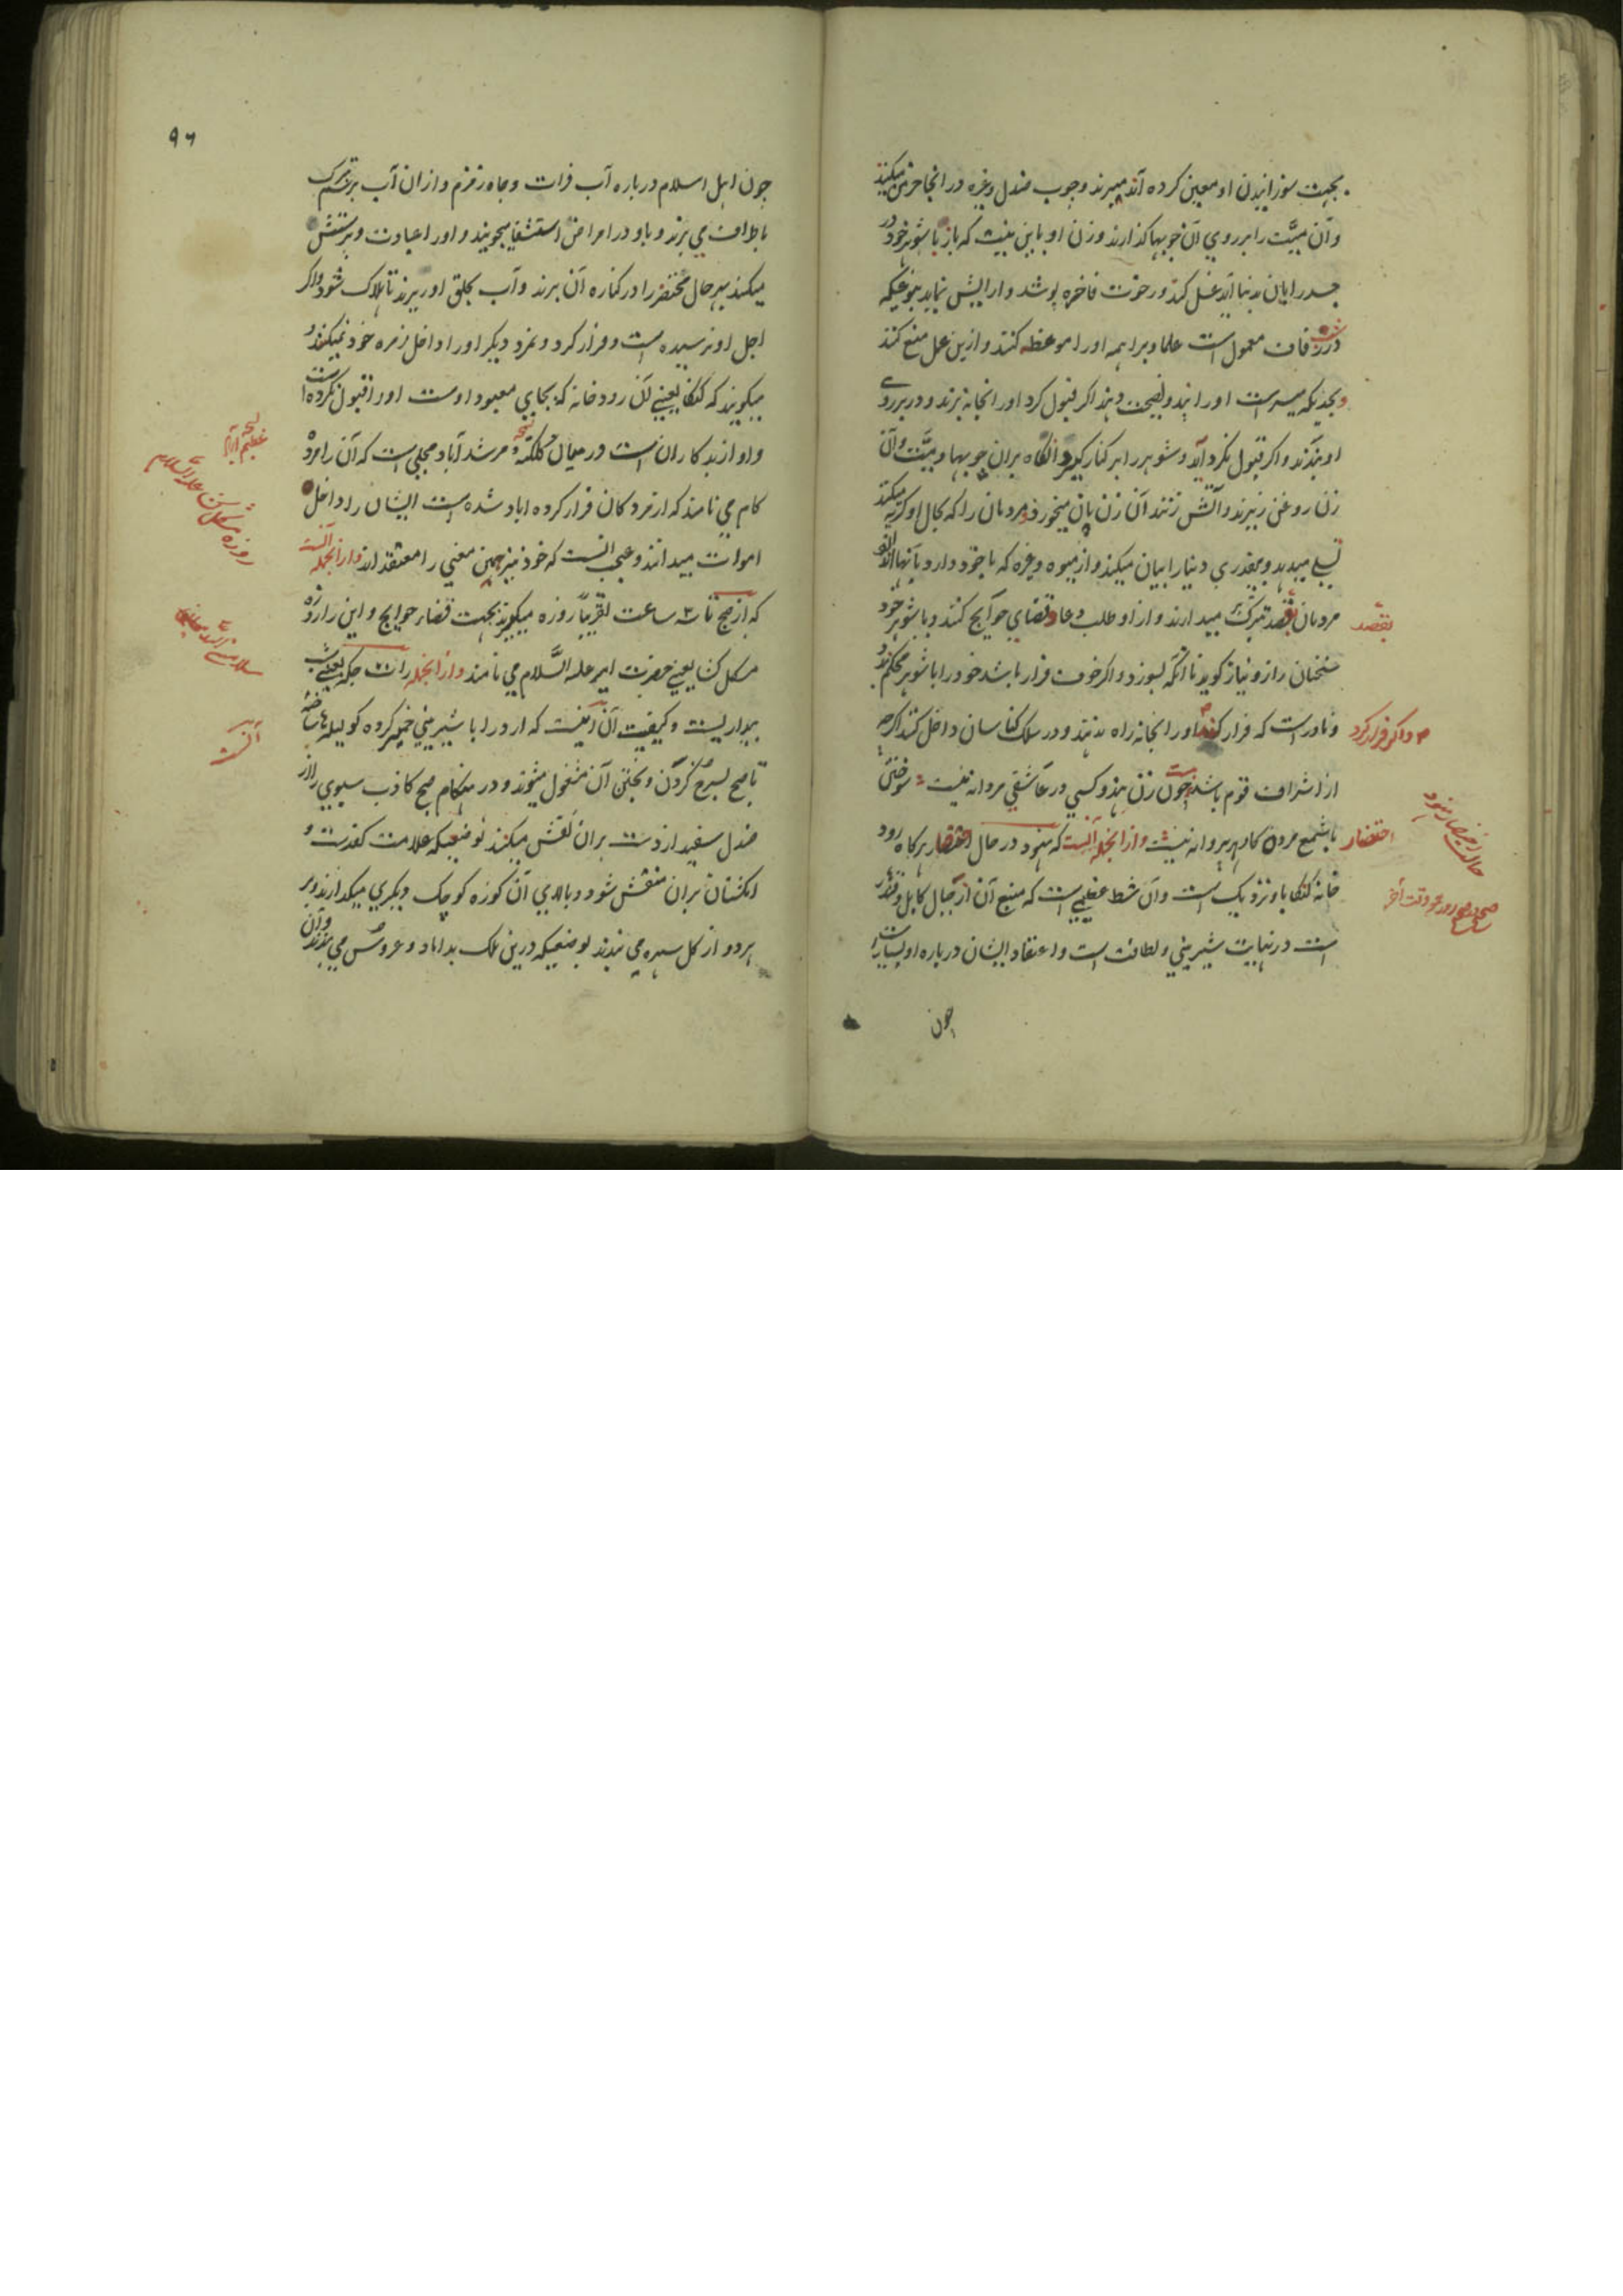 بجهت سوزانیدن او معین کرده اند میبرند و چوب صندل وغیره در انجا خرمن میکنند
و آن میّت را بر روی آن چوبها گذارند و زن او باین نیت که باز با شوهر خود در
جسد رایان بدنیا آید غسل کند و رخوت فاخره پوشد و ارایش نماید بنوعیکه
در زفاف معمول است علما و براهمه او را موعظه کنند و ازین عمل منع کنند
و بحدیکه میسر است او را پند و نصیحت دهند اگر قبول کرد او را بخانه برند و در بر روی
او بندند و اگر قبول نکرد آید و شوهر را بر کنار گیرد آنگاه بران چوبها و میّت و آن
زن روغن ریزند و آتش زنند آن زن پان میخورد و مردمان را که بحال او گریه میکنند
تسلی میدهد و بیقدری دنیا را بیان میکند و از میوه وغیره که با خود دارد بآنها
مردمان بقصد تبرک میدارند و از او طلب دعا و قضای حوایج کنند و با شوهر خود
بقصد
سخنان راز و نیاز گوید تا آنکه بسوزد و اگر خوف فرار باشد خود را با شوهر محکم
و نادر است که فرار کند او را بخانه راه ندهند و در سلک کناسان داخل کنند اگرچه
و اگر فرار کرد
از اشراف قوم باشد چون زن هندو کسی در عاشقی مردانه نیست سوختن
با شمع مرده کار هر پروانه نیست و از انجمله آنست که هنود در حال احتضار هرگاه رود
احتضار
خانه گنگا با و نزدیک است و آن شط عظیمی است که منبع آن از جبال کابل و قندهار
است در نهایت شیرینی و لطافت است و اعتقاد ایشان درباره او بسیار است
چون
۹۶
چون اهل اسلام درباره آب فرات و چاه زمزم و از ان آب برسم تبرک
باطراف می برند و باو در امراض استشفا میجویند و او را عبادت و پرستش
میکنند بهر حال محتضر را در کناره آن برند و آب بحلق او ریزند تا هلاک شود و اگر
اجل او نرسیده است و فرار کرد و نمرد دیگر او را داخل زمره خود نمیکنند و
میگویند که گنگا یعنی آن رودخانه که بجای معبود اوست او را قبول نکرده است
و او از بدکاران است در میان کلکته و مرشد آباد محلی است که آن را مرده
کام می نامند که از مردکان فرار کرده اباد شده است ایشان را داخل
اموات میدانند و عجب آنست که خود نیز همین معنی را معتقدند و از انجمله آنست
که از صبح تا ۳ ساعت تقریباً روزه میگیرند بجهت قضاء حوایج و این را روزه
مشکل کشا یعنی حضرت امیر علیه السّلام می نامند و از انجمله رات جگه یعنی شب
بیداریست و کیفیت آن اینست که ارد را با شیرینی خمیر کرده گولیها ساخته
تا صبح بسرخ کردن و پختن آن مشغول میشوند و در هنگام صبح کاذب سبوی را از
صندل سفید از دست بران نقش میکنند بوضعیکه علامت کف دست و
انگشتان بران منقش شود و بالای آن کوزه کوچک دیگری میگذارند و بر
هر دو از گل سهره می بندند بوضعیکه درین ملک بداماد و عروس می بندند و آن